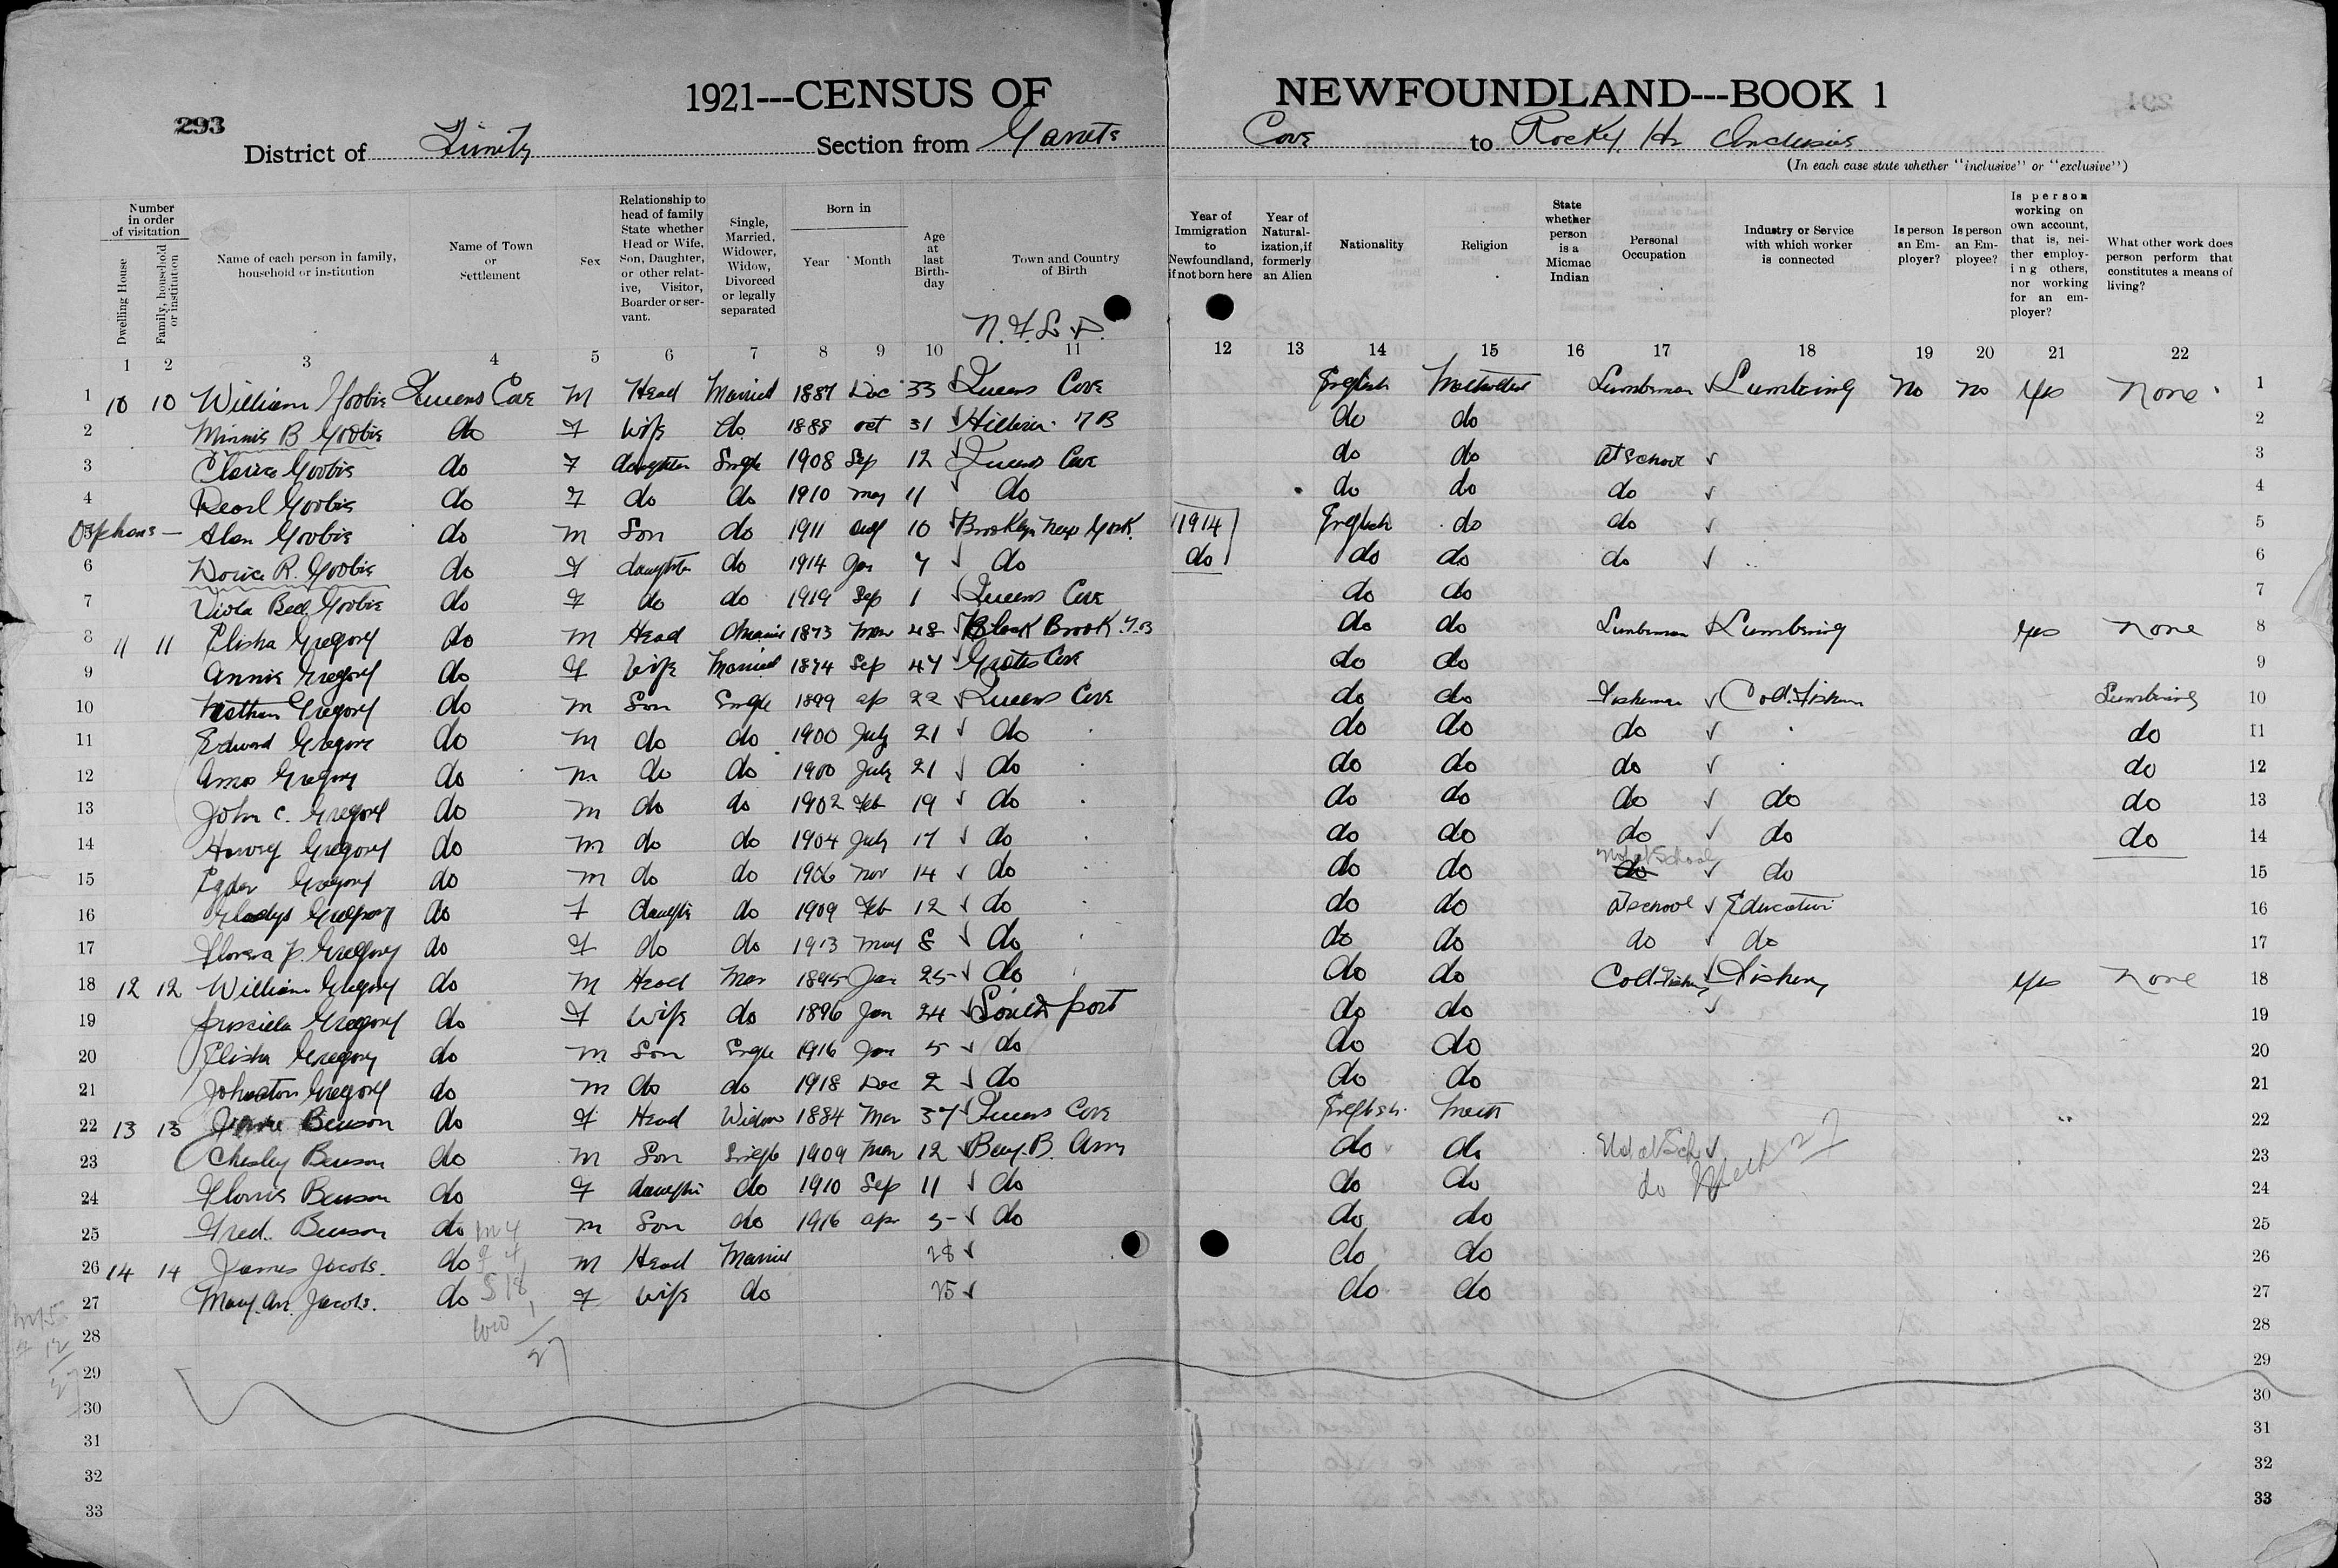 1921---CENSUS OF NEWFOUNDLAND---BOOK 1
293
District of Trinity Section from Cove to Rocky Hr Inclusive
(In each case state whether "inclusive" or "exclusive")
Number in order of visitation
Dwelling House
Family, household or institution
Name of each person in family, household or institution
Name of Town or Settlement
Sex
Relationship to head of family State whether Head or Wife, Son, Daughter, or other relative, Visitor, Boarder or servant.
Single, Married, Widower, Widow, Divorced or legally separated
Born in
Year Month
Age at last Birthday
Town and Country of Birth
N.F.L.D.
Year of Immigration to Newfoundland, if not born here
Year of Naturalization, if formerly an Alien
Nationality
Religion
State whether person is a Micmac Indian
Personal Occupation
Industry or Service with which worker is connected
Is person an Employer?
Is person an Employee?
Is person working on own account, that is, neither employing others, nor working for an employer?
What other work does person perform that constitutes a means of living?
1 2 3 4 5 6 7 8 9 10 11 12 13 14 15 16 17 18 19 20 21 22
1 10 10 William Goobie Queens Cove M Head Married 1887 Dec 33 Queens Cove English Methodist Lumberman Lumbering No No Yes None 1
2 Minnie B Goobie do F Wife do 1888 oct 31 do do 2
3 Clarice Goobie do F daughter Single 1908 Sep 12 Queens Cove do do at School 3
4 Pearl Goobie do F do do 1910 may 11 do do do do 4
5 Orphans — Alan Goobie do M Son do 1911 aug 10 Brooklyn New York 1914 English do do 5
6 Dorice R. Goobie do F daughter do 1914 Jan 7 do do do do do 6
7 Viola Goobie do F do do 1919 Sep 1 Queens Cove do do 7
8 11 11 Elisha Gregory do M Head 1873 48 Black Brook T.B do do Lumberman Lumbering Yes None 8
9 Annie Gregory do F Wife Married 1874 Sep 47 Cove do do 9
10 Nathan Gregory do M Son Single 1899 ap 22 Queens Cove do do Fisherman Cod. Lumbering 10
11 Edward Gregory do M do do 1900 July 21 do do do do do 11
12 Amos Gregory do M do do 1900 July 21 do do do do do 12
13 John C. Gregory do M do do 1902 Feb 19 do do do do do do 13
14 Harvey Gregory do M do do 1904 July 17 do do do do do do 14
15 Gregory do M do do 1906 Nov 14 do do do Not at School do do 15
16 Gladys Gregory do F daughter do 1909 Feb 12 do do do At school Education 16
17 Gregory do F do do 1913 May 8 do do do do do 17
18 12 12 William Gregory do M Head Mar 1895 Jan 25 do do do Cod Fishery Yes None 18
19 Priscilla Gregory do F Wife do 1896 Jan 24 South port do do 19
20 Elisha Gregory do M Son Single 1916 Jan 5 do do do 20
21 Johnston Gregory do M do do 1918 Dec 2 do do do 21
22 13 13 Benson do F Head Widow 1884 Mar 37 Queens Cove English Meth 22
23 Chesley Benson do M Son Single 1909 Mar 12 Bay. B. Arm do do Not at Sch 23
24 Florris Benson do F daughter do 1910 Sep 11 do do do do Meth 27 24
25 Fred. Benson do M Son do 1916 apr 5 do do do 25
26 14 14 James Jacobs. do M Head Married 28 do do 26
27 Mary. An. Jacobs. do F Wife do 25 do do 27
m 4
f 4
S 18
Wid 1
27
m 15
f 12
27
28 28
29 29
30 30
31 31
32 32
33 33